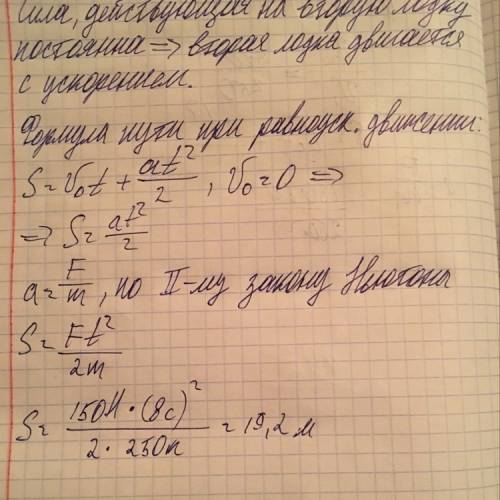 Сила, действующая на вторую лодку
постоянна => вторая лодка двигается
с ускорением.
Формула пути при равноуск. движении:
S = V₀t + at²/2 , V₀ = 0 =>
=> S = at²/2
a = F/m , по II-му закону Ньютоны
S = Ft²/2m
S = 150Н · (8с)² / 2 · 250к = 19,2 м